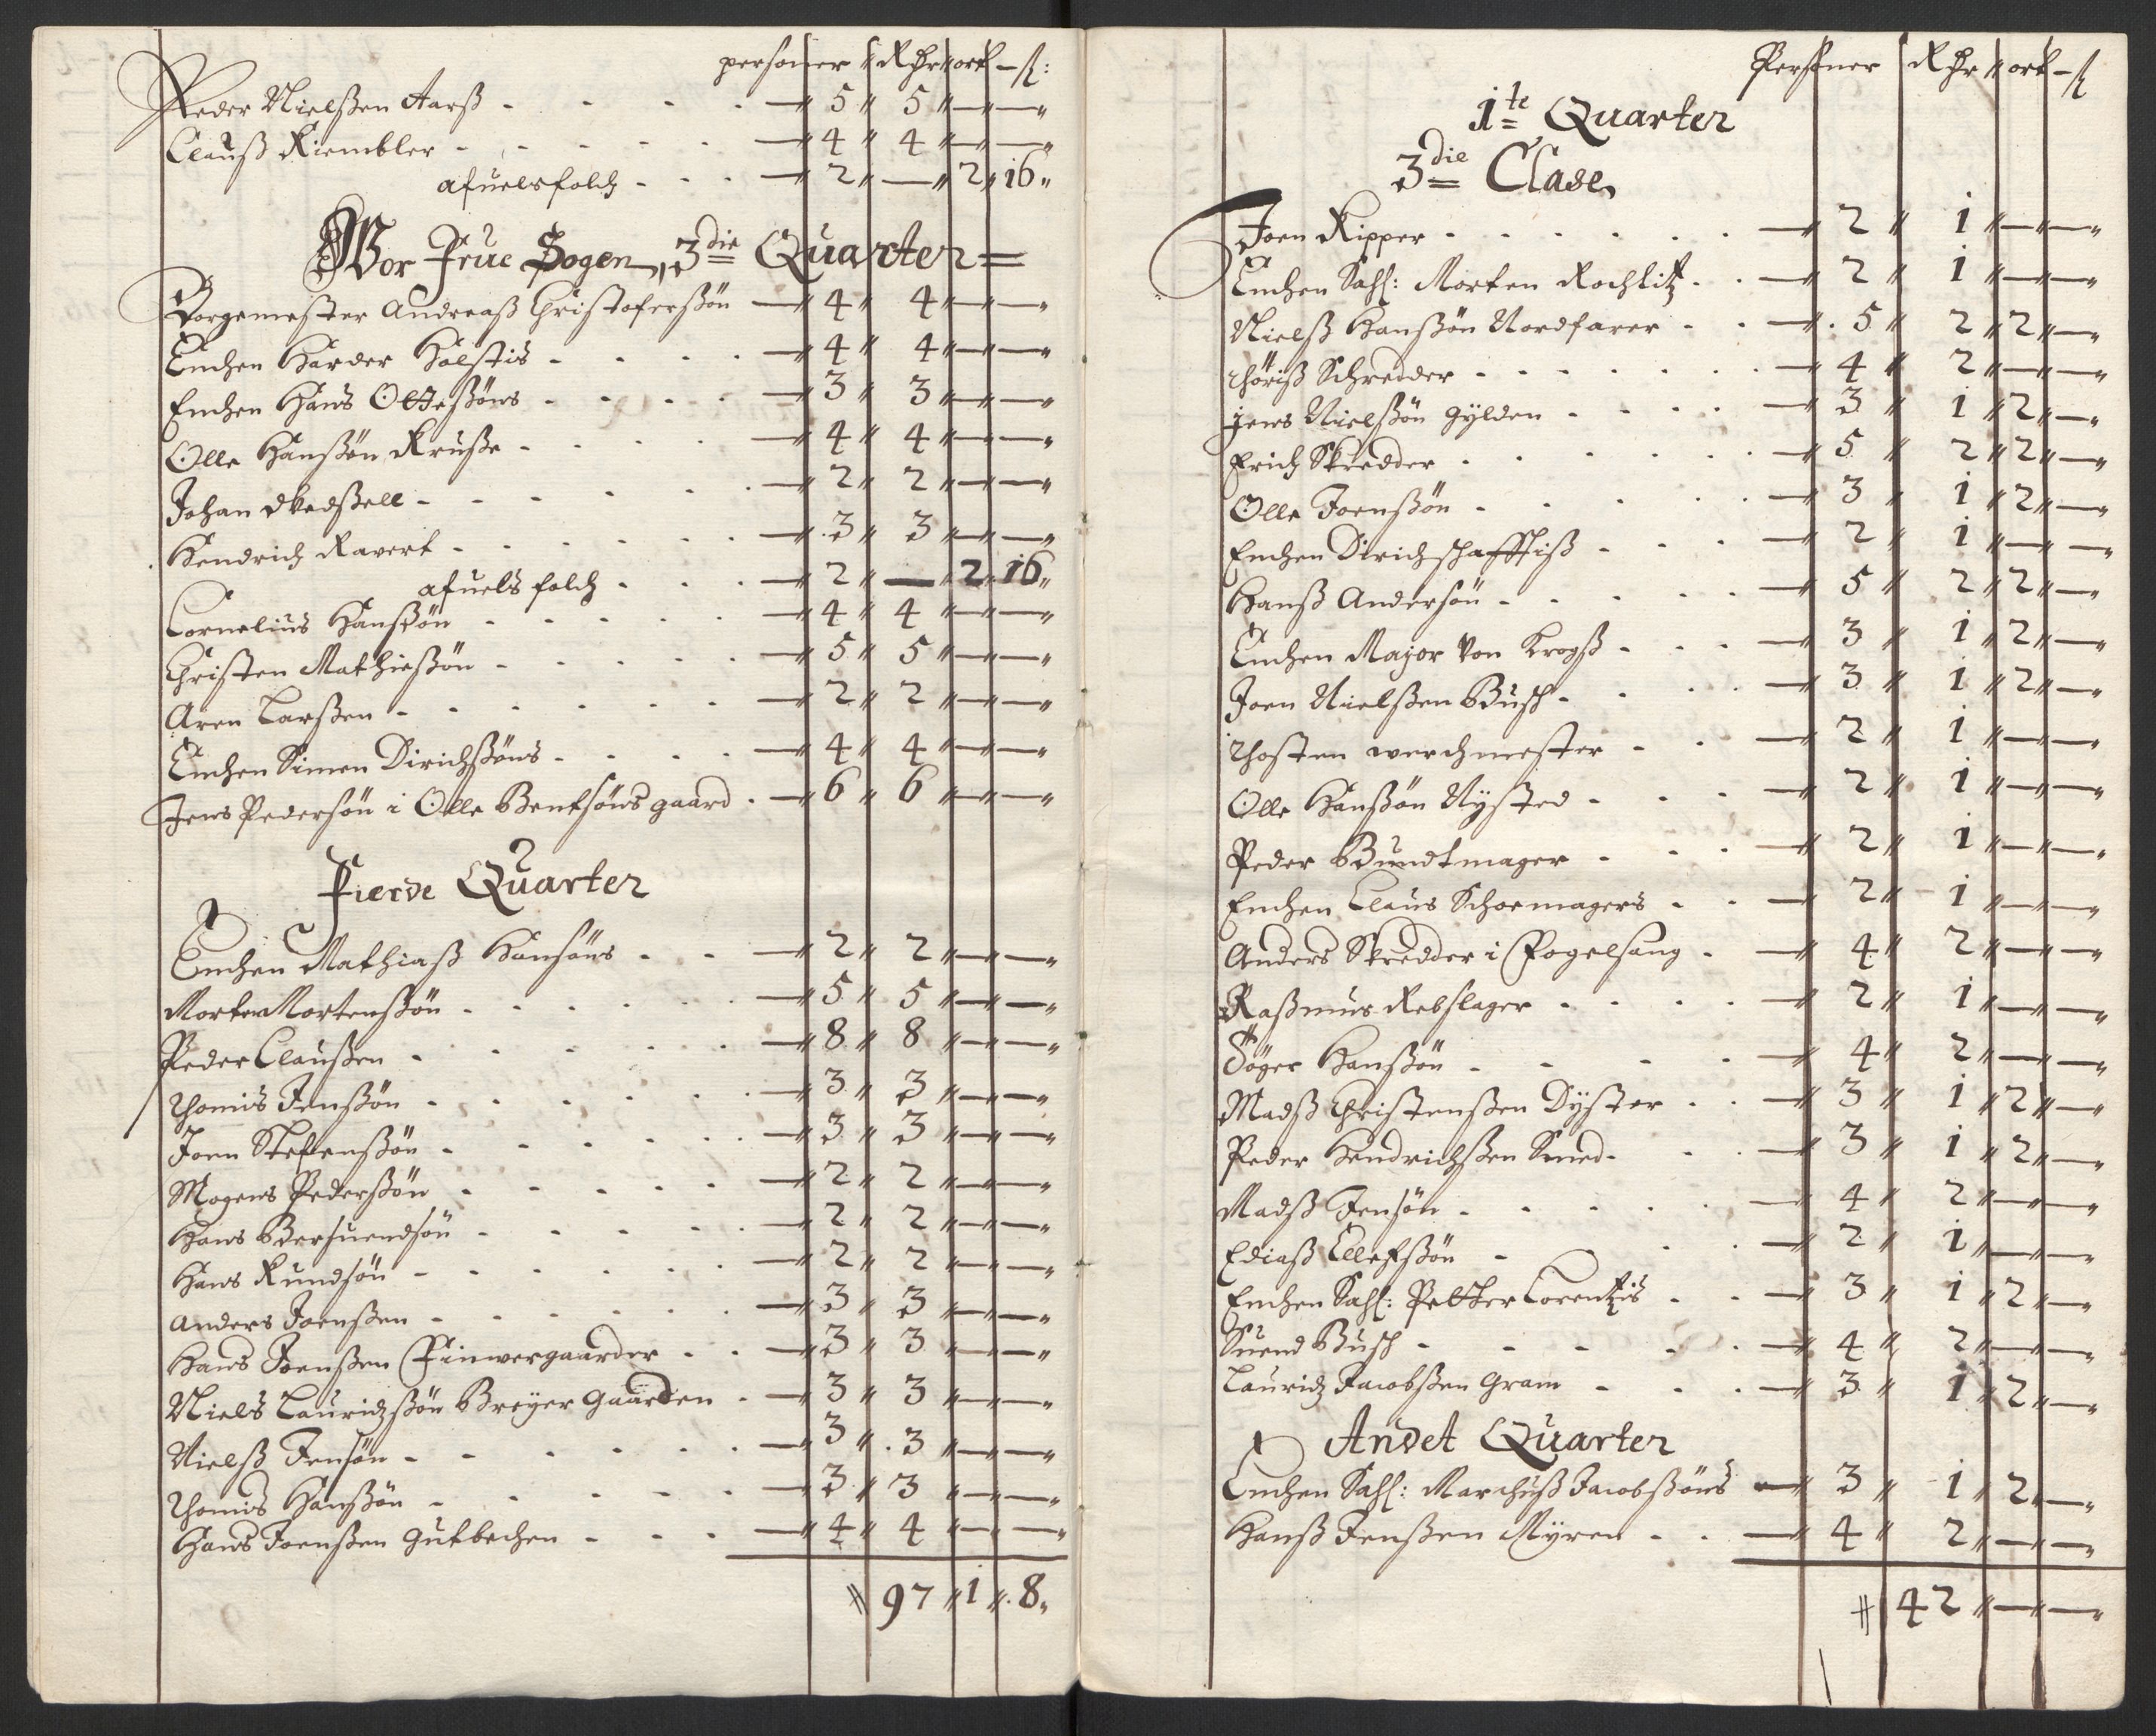 personer Rdr ort ß:
Peder Nielßen Aarß - - - - 5 5 - -
Clauß Riembler - - - - 4 4 - -
afuelsfolch - - - 2 - 2 16
Vor Frue Sogen, 3die Quarter =
Borgemester Andreaß Christoferßön 4 4 - -
Enchen Harder Holstis - - - 4 4 - -
Enchen Hans Olteßöns - - - 3 3 - -
Olle Hanßön Kruße - - - 4 4 - -
Johan - - - 2 2 - -
Hendrich Ravert - - - 3 3 - -
afuels folch - - - 2 - 2 16
Cornelius Hanßön - - - 4 4 - -
Christen Mathießön - - - 5 5 - -
Aren Larßen - - - 2 2 - -
Enchen Simen Dirichßöns - - - 4 4 - -
Jens Pedersön i Olle Bentsöns gaard - 6 6 - -
Fierde Quarter
Enchen Mathiaß Hansöns - - 2 2 - -
Morten Mortenßön - - - 5 5 - -
Peder Claußen - - - 8 8 - -
Thomis Jenßön - - - 3 3 - -
Joen Stefenßön - - - 3 3 - -
Mogens Pederßön - - - 2 2 - -
Hans Bersuendsön - - - 2 2 - -
Hans Kundsön - - - 2 2 - -
Anders Joenßen - - - 3 3 - -
Hans Joenßen Finwergaarder - - 3 3 - -
Niels Lauridßön Breyer Gaarden - 3 3 - -
Nielß Jensön - - - 3 3 - -
Thomis Hanßön - - - 3 3 - -
Hans Joenßen Gutbechen - - - 4 4 - -
97 1 8
Personer Rdr ort ß
1te Quarter
3die Clase
Joen Ripper - - - 2 1 - -
Enchen Sahl: Morten Rochlitz - 2 1 - -
Nielß Hanßön Nordfarer - - 5 2 2 -
Thöriß Schredder - - - 4 2 - -
Jens Nielßön Gylden - - - 3 1 2 -
Erich Skredder - - - 5 2 2 -
Olle Joenßön - - - 3 1 2 -
Enchen Dirich Schafftiß - - - 2 1 - -
Hanß Andersön - - - 5 2 2 -
Enchen Major von Krogß - - - 3 1 2 -
Joen Nielßen Busch - - - 3 1 2 -
Thosten werchmester - - 2 1 - -
Olle Hanßön Nysted - - - 2 1 - -
Peder Bundtmager - - - 2 1 - -
Enchen Claus Schoemagers - - 2 1 - -
Anders Skredder i Fogelsang - 4 2 - -
Raßmus Rebslager - - - 2 1 - -
Söger Hanßön - - - 4 2 - -
Madß Christenßen Dyster - - 3 1 2 -
Peder Hendrichßen Smed - - 3 1 2 -
Madß Jensön - - - 4 2 - -
Ediaß Ellefßön - - - 2 1 - -
Enchen Sahl: Petter Lorentzis - - 3 1 2 -
Suend Busch - - - 4 2 - -
Lauridz Jacobßen Gram - - - 3 1 2 -
Andet Quarter
Enchen Sahl: Marchuß Jacobßöns 3 1 2 -
Hanß Jenßen Myren - - 4 2 - -
42 - -